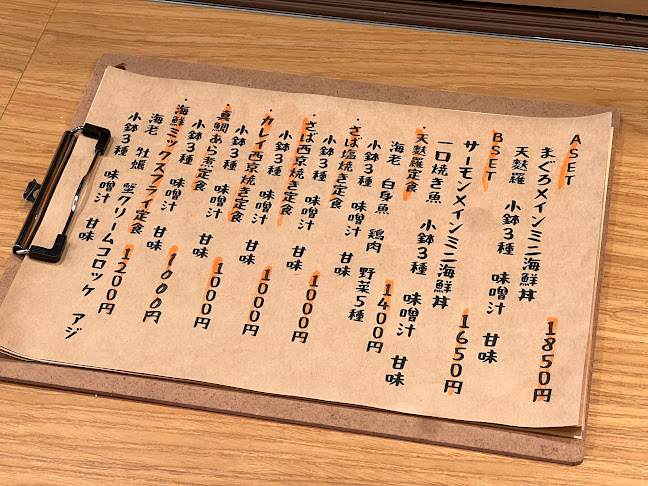 ASET
まぐろメインミニ海鮮丼
天麩羅 小鉢3種 味噌汁 甘味
1850円
BSET
サーモンメインミニ海鮮丼
一口焼き魚 小鉢3種 味噌汁 甘味
1650円
・天麩羅定食
海老 白身魚 鶏肉 野菜5種
小鉢3種 味噌汁 甘味
1400円
・さば塩焼き定食
小鉢3種 味噌汁 甘味
1000円
・さば西京焼き定食
小鉢3種 味噌汁 甘味
1000円
・カレイ西京焼き定食
小鉢3種 味噌汁 甘味
1000円
・真鯛あら煮定食
小鉢3種 味噌汁 甘味
1000円
・海鮮ミックスフライ定食
海老 牡蠣 蟹クリームコロッケ アジ
小鉢3種 味噌汁 甘味
1200円